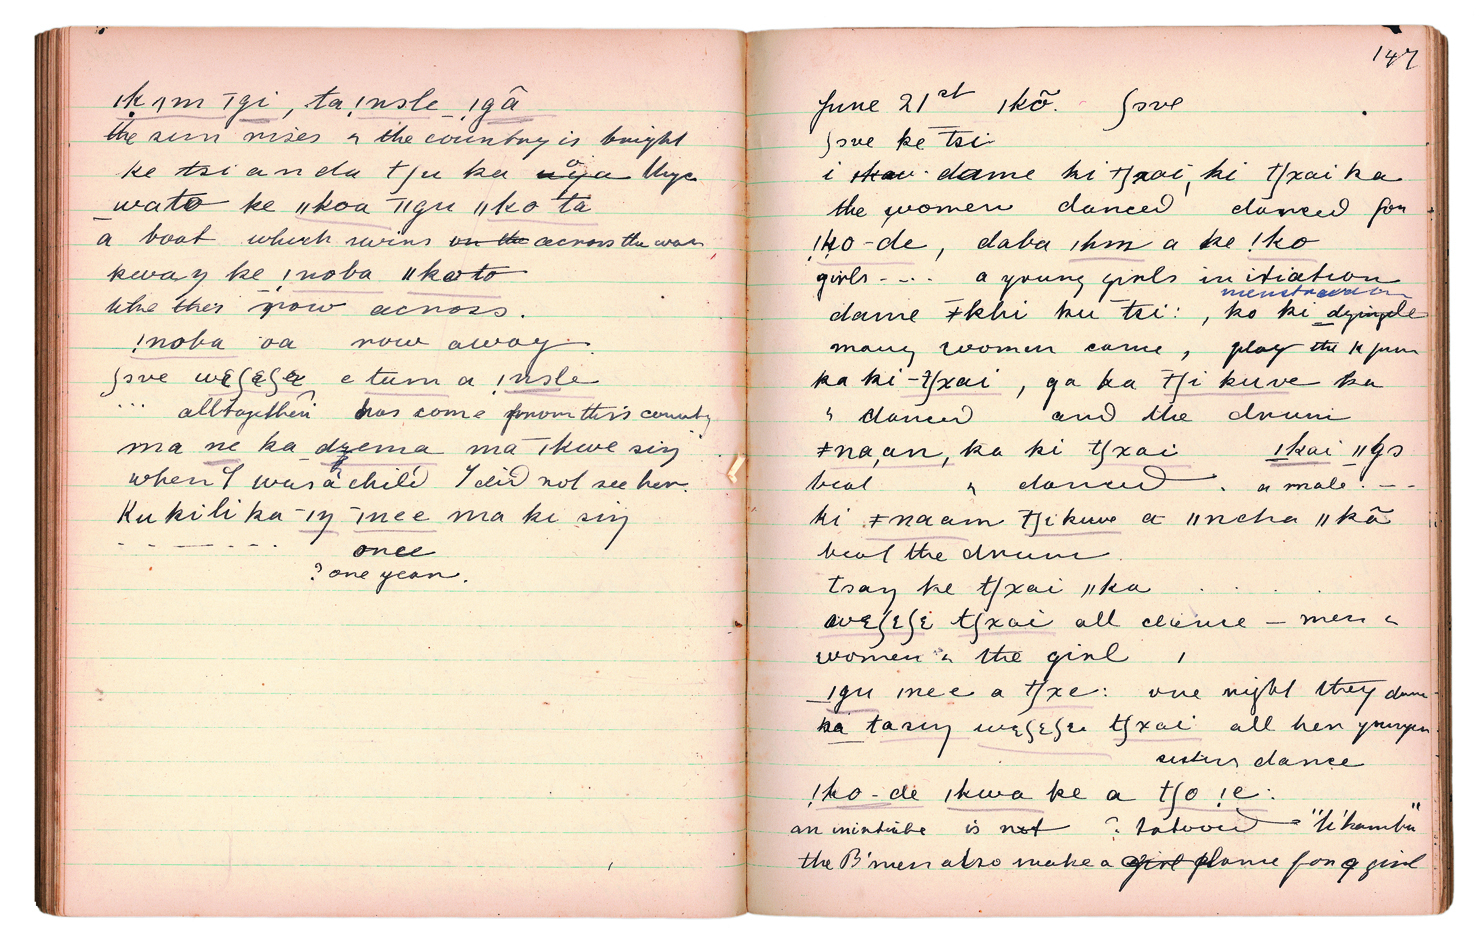 ıkımīgi, taǃnsle ǃgā
the sun rises & the country is bright
ke tsi anda tʃu ka
wato ke ǁkoa ǁgu ǁko ta
a boat which swims on the across the water
kway ke ǃnoba ǁkoto
row across.
ǃnoba oa row away.
ʃɔve wɛʃɛʃɛ e tum a ǃnsle
... alltogether has come from this country
ma ne ka dzema ma ıkwe siŋ
when I was a child I did not see her.
Kukilika-ıŋ ınee ma ke siŋ
once
? one year.
147
June 21st ıkō. ʃɔve
ʃɔve ke tsi
i dame ki tʃxai, ki tʃxai ka
the women danced danced for
ǃko-de, daba ıhm a ke ǃko
girls -... a young girls initiation
menstruation
dame ǂkhi ku tsi: , ko ki
many women came , play the
ka ki-tʃxai , ga ka tʃi kuve ka
& danced and the drum
ǂnaan, ka ki tʃxai ıkai ǁgɔ
beat & danced . a male. --
ki ǂnaam tʃikuve a ǁncha ǁkā
beat the drum.
tsay ke tʃxai ǁka
wɛʃɛʃɛ tʃxai all dance – men &
women & the girl ,
ıgu ınee a tʃxe: one night they dance
ka tasiŋ wɛʃɛʃɛ tʃxai all her younger
sisters dance
ǃko-de ıkwa ke a tʃo ǃe:
an initiate is not ? tatooed – "likamba"
the B'men also make a girl flame for a girl